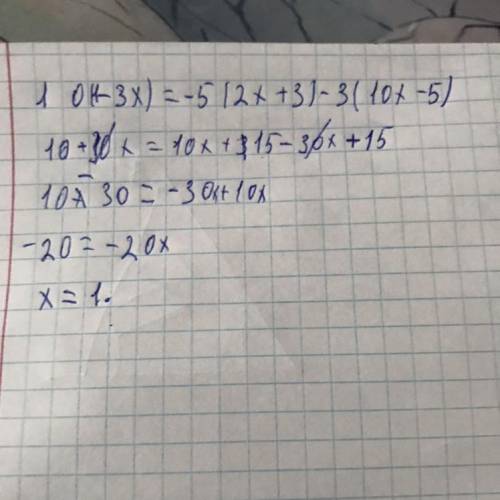 1 0(1-3x) = -5(2x+3)-3(10x-5)
10+30x = 10x+15-30x+15
10-30 = -30x+10x
-20 = -20x
x = 1.